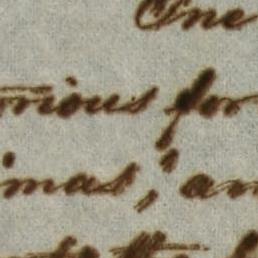 One
rious for
imas; an